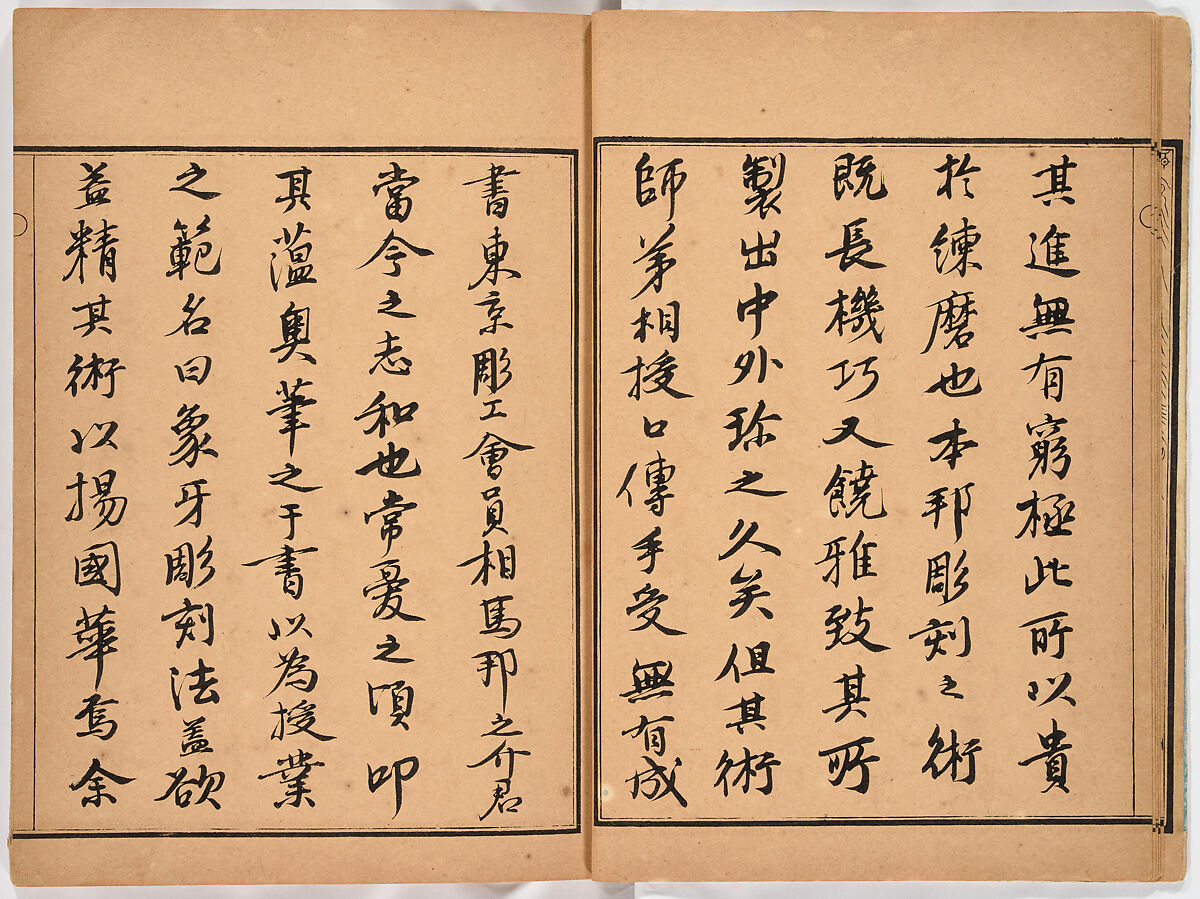 其進無有窮極此所以貴
於練磨也本邦彫刻之術
既長機巧又饒雅致其所
製出中外珍之久矣但其術
師弟相授口傳手受無有成
書東京彫工會員相馬邦之介君
當今之志和也常憂之頃叩
其薀奥筆之于書以為授業
之範名曰象牙彫刻法蓋欲
益精其術以揚國華焉余